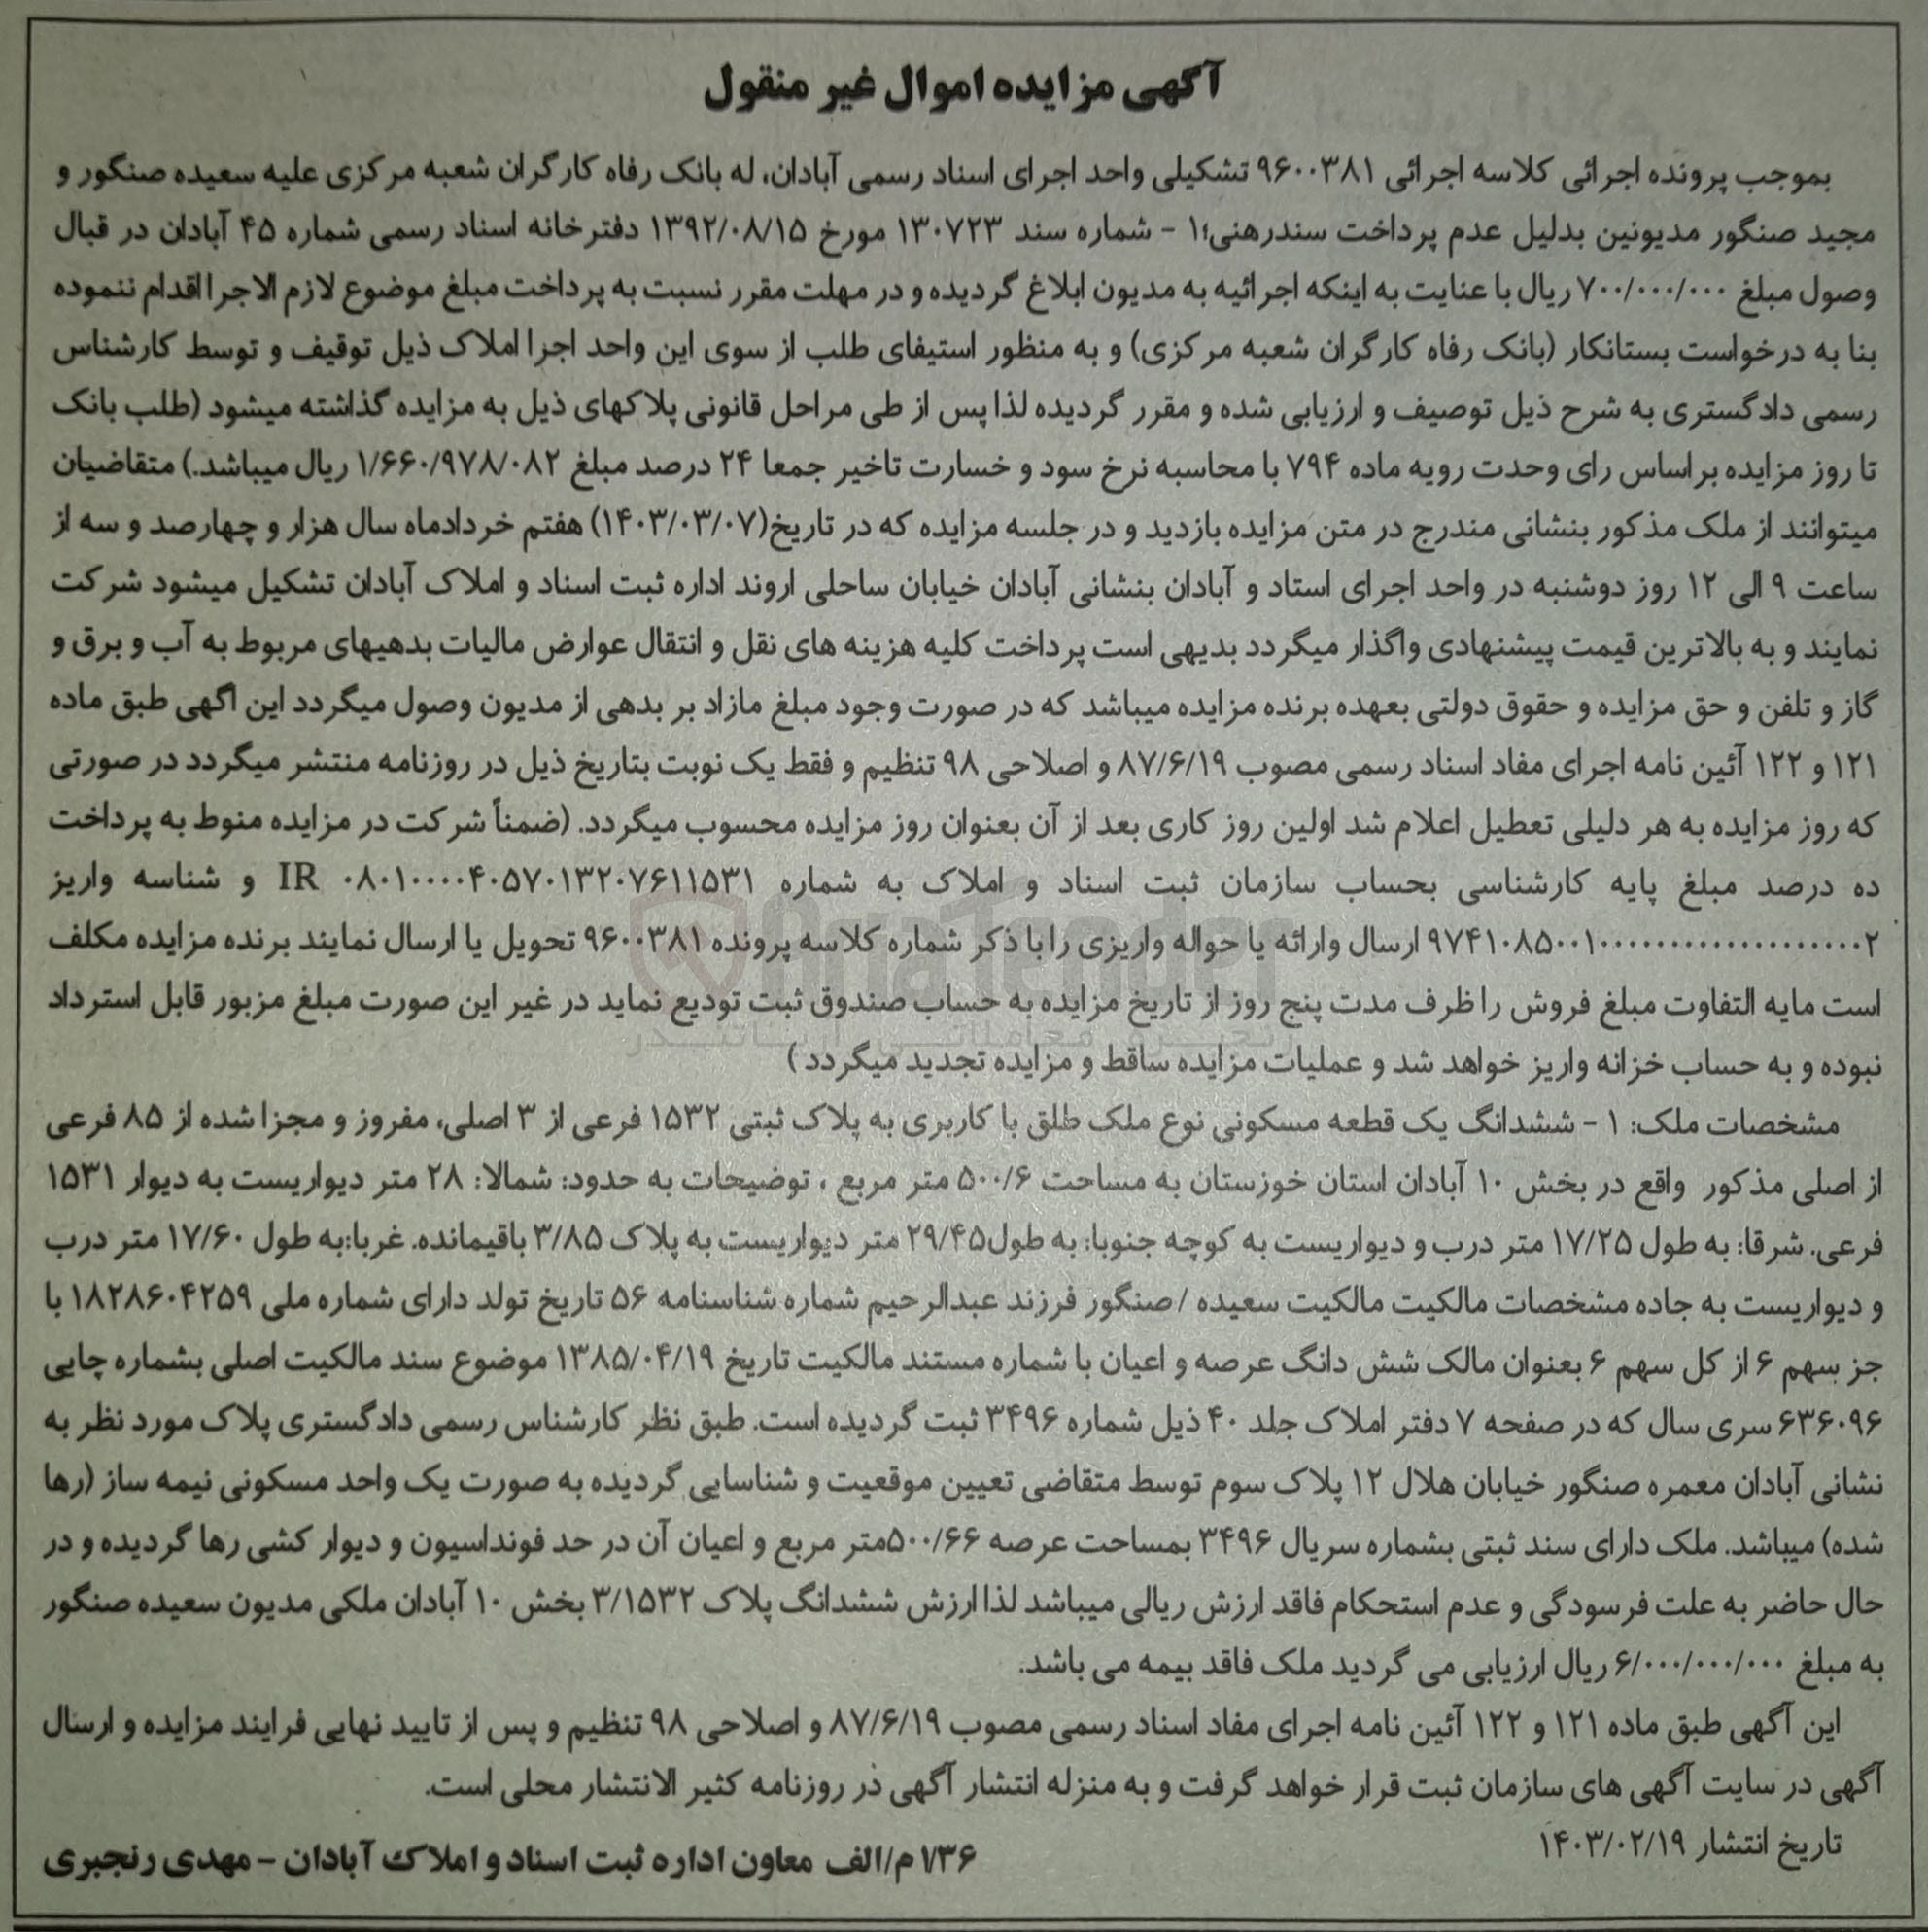 آگهی مزایده اموال غیر منقول
بموجب پرونده اجرائی کلاسه اجرائی ۹۶۰۰۳۸۱ تشکیلی واحد اجرای اسناد رسمی آبادان، له بانک رفاه کارگران شعبه مرکزی علیه سعیده صنگور و
مجید صنگور مدیونین بدلیل عدم پرداخت سندرهنی؛۱ - شماره سند ۱۳۰۷۲۳ مورخ ۱۳۹۲/۰۸/۱۵ دفترخانه اسناد رسمی شماره ۴۵ آبادان در قبال
وصول مبلغ ۷۰۰/۰۰۰/۰۰۰ ریال با عنایت به اینکه اجرائیه به مدیون ابلاغ گردیده و در مهلت مقرر نسبت به پرداخت مبلغ موضوع لازم الاجرا اقدام ننموده
بنا به درخواست بستانکار (بانک رفاه کارگران شعبه مرکزی) و به منظور استیفای طلب از سوی این واحد اجرا املاک ذیل توقیف و توسط کارشناس
رسمی دادگستری به شرح ذیل توصیف و ارزیابی شده و مقرر گردیده لذا پس از طی مراحل قانونی پلاکهای ذیل به مزایده گذاشته میشود (طلب بانک
تا روز مزایده براساس رای وحدت رویه ماده ۷۹۴ با محاسبه نرخ سود و خسارت تاخیر جمعا ۲۴ درصد مبلغ ۱/۶۶۰/۹۷۸/۰۸۲ ریال میباشد.) متقاضیان
میتوانند از ملک مذکور بنشانی مندرج در متن مزایده بازدید و در جلسه مزایده که در تاریخ(۱۴۰۳/۰۳/۰۷) هفتم خردادماه سال هزار و چهارصد و سه از
ساعت ۹ الی ۱۲ روز دوشنبه در واحد اجرای استاد و آبادان بنشانی آبادان خیابان ساحلی اروند اداره ثبت اسناد و املاک آبادان تشکیل میشود شرکت
نمایند و به بالاترین قیمت پیشنهادی واگذار میگردد بدیهی است پرداخت کلیه هزینه های نقل و انتقال عوارض مالیات بدهیهای مربوط به آب و برق و
گاز و تلفن و حق مزایده و حقوق دولتی بعهده برنده مزایده میباشد که در صورت وجود مبلغ مازاد بر بدهی از مدیون وصول میگردد این آگهی طبق ماده
۱۲۱ و ۱۲۲ آئین نامه اجرای مفاد اسناد رسمی مصوب ۸۷/۶/۱۹ و اصلاحی ۹۸ تنظیم و فقط یک نوبت بتاریخ ذیل در روزنامه منتشر میگردد در صورتی
که روز مزایده به هر دلیلی تعطیل اعلام شد اولین روز کاری بعد از آن بعنوان روز مزایده محسوب میگردد. (ضمناً شرکت در مزایده منوط به پرداخت
ده درصد مبلغ پایه کارشناسی بحساب سازمان ثبت اسناد و املاک به شماره IR ۰۸۰۱۰۰۰۰۴۰۵۷۰۱۳۲۰۷۶۱۱۵۳۱ و شناسه واریز
ارسال وارائه یا حواله واریزی را با ذکر شماره کلاسه پرونده ۹۶۰۰۳۸۱ تحویل یا ارسال نمایند برنده مزایده مکلف
است مابه التفاوت مبلغ فروش را ظرف مدت پنج روز از تاریخ مزایده به حساب صندوق ثبت تودیع نماید در غیر این صورت مبلغ مزبور قابل استرداد
نبوده و به حساب خزانه واریز خواهد شد و عملیات مزایده ساقط و مزایده تجدید میگردد )
مشخصات ملک: ۱ - ششدانگ یک قطعه مسکونی نوع ملک طلق با کاربری به پلاک ثبتی ۱۵۳۲ فرعی از ۳ اصلی، مفروز و مجزا شده از ۸۵ فرعی
از اصلی مذکور واقع در بخش ۱۰ آبادان استان خوزستان به مساحت ۵۰۰/۶ متر مربع ، توضیحات به حدود: شمالا: ۲۸ متر دیواریست به دیوار ۱۵۳۱
فرعی. شرقا: به طول ۱۷/۲۵ متر درب و دیواریست به کوچه جنوبا: به طول۲۹/۴۵ متر دیواریست به پلاک ۳/۸۵ باقیمانده. غربا:به طول ۱۷/۶۰ متر درب
و دیواریست به جاده مشخصات مالکیت مالکیت سعیده /صنگور فرزند عبدالرحیم شماره شناسنامه ۵۶ تاریخ تولد دارای شماره ملی ۱۸۲۸۶۰۴۲۵۹ با
جز سهم ۶ از کل سهم ۶ بعنوان مالک شش دانگ عرصه و اعیان با شماره مستند مالکیت تاریخ ۱۳۸۵/۰۴/۱۹ موضوع سند مالکیت اصلی بشماره چاپی
۶۳۶۰۹۶ سری سال که در صفحه ۷ دفتر املاک جلد ۴۰ ذیل شماره ۳۴۹۶ ثبت گردیده است. طبق نظر کارشناس رسمی دادگستری پلاک مورد نظر به
نشانی آبادان معمره صنگور خیابان هلال ۱۲ پلاک سوم توسط متقاضی تعیین موقعیت و شناسایی گردیده به صورت یک واحد مسکونی نیمه ساز (رها
شده) میباشد. ملک دارای سند ثبتی بشماره سریال ۳۴۹۶ بمساحت عرصه ۵۰۰/۶۶متر مربع و اعیان آن در حد فونداسیون و دیوار کشی رها گردیده و در
حال حاضر به علت فرسودگی و عدم استحکام فاقد ارزش ریالی میباشد لذا ارزش ششدانگ پلاک ۳/۱۵۳۲ بخش ۱۰ آبادان ملکی مدیون سعیده صنگور
به مبلغ ۶/۰۰۰/۰۰۰/۰۰۰ ریال ارزیابی می گردید ملک فاقد بیمه می باشد.
این آگهی طبق ماده ۱۲۱ و ۱۲۲ آئین نامه اجرای مفاد اسناد رسمی مصوب ۸۷/۶/۱۹ و اصلاحی ۹۸ تنظیم و پس از تایید نهایی فرایند مزایده و ارسال
آگهی در سایت آگهی های سازمان ثبت قرار خواهد گرفت و به منزله انتشار آگهی در روزنامه کثیر الانتشار محلی است.
تاریخ انتشار ۱۴۰۳/۰۲/۱۹
۱/۳۶م/الف معاون اداره ثبت اسناد و املاک آبادان - مهدی رنجبری
AriaTender